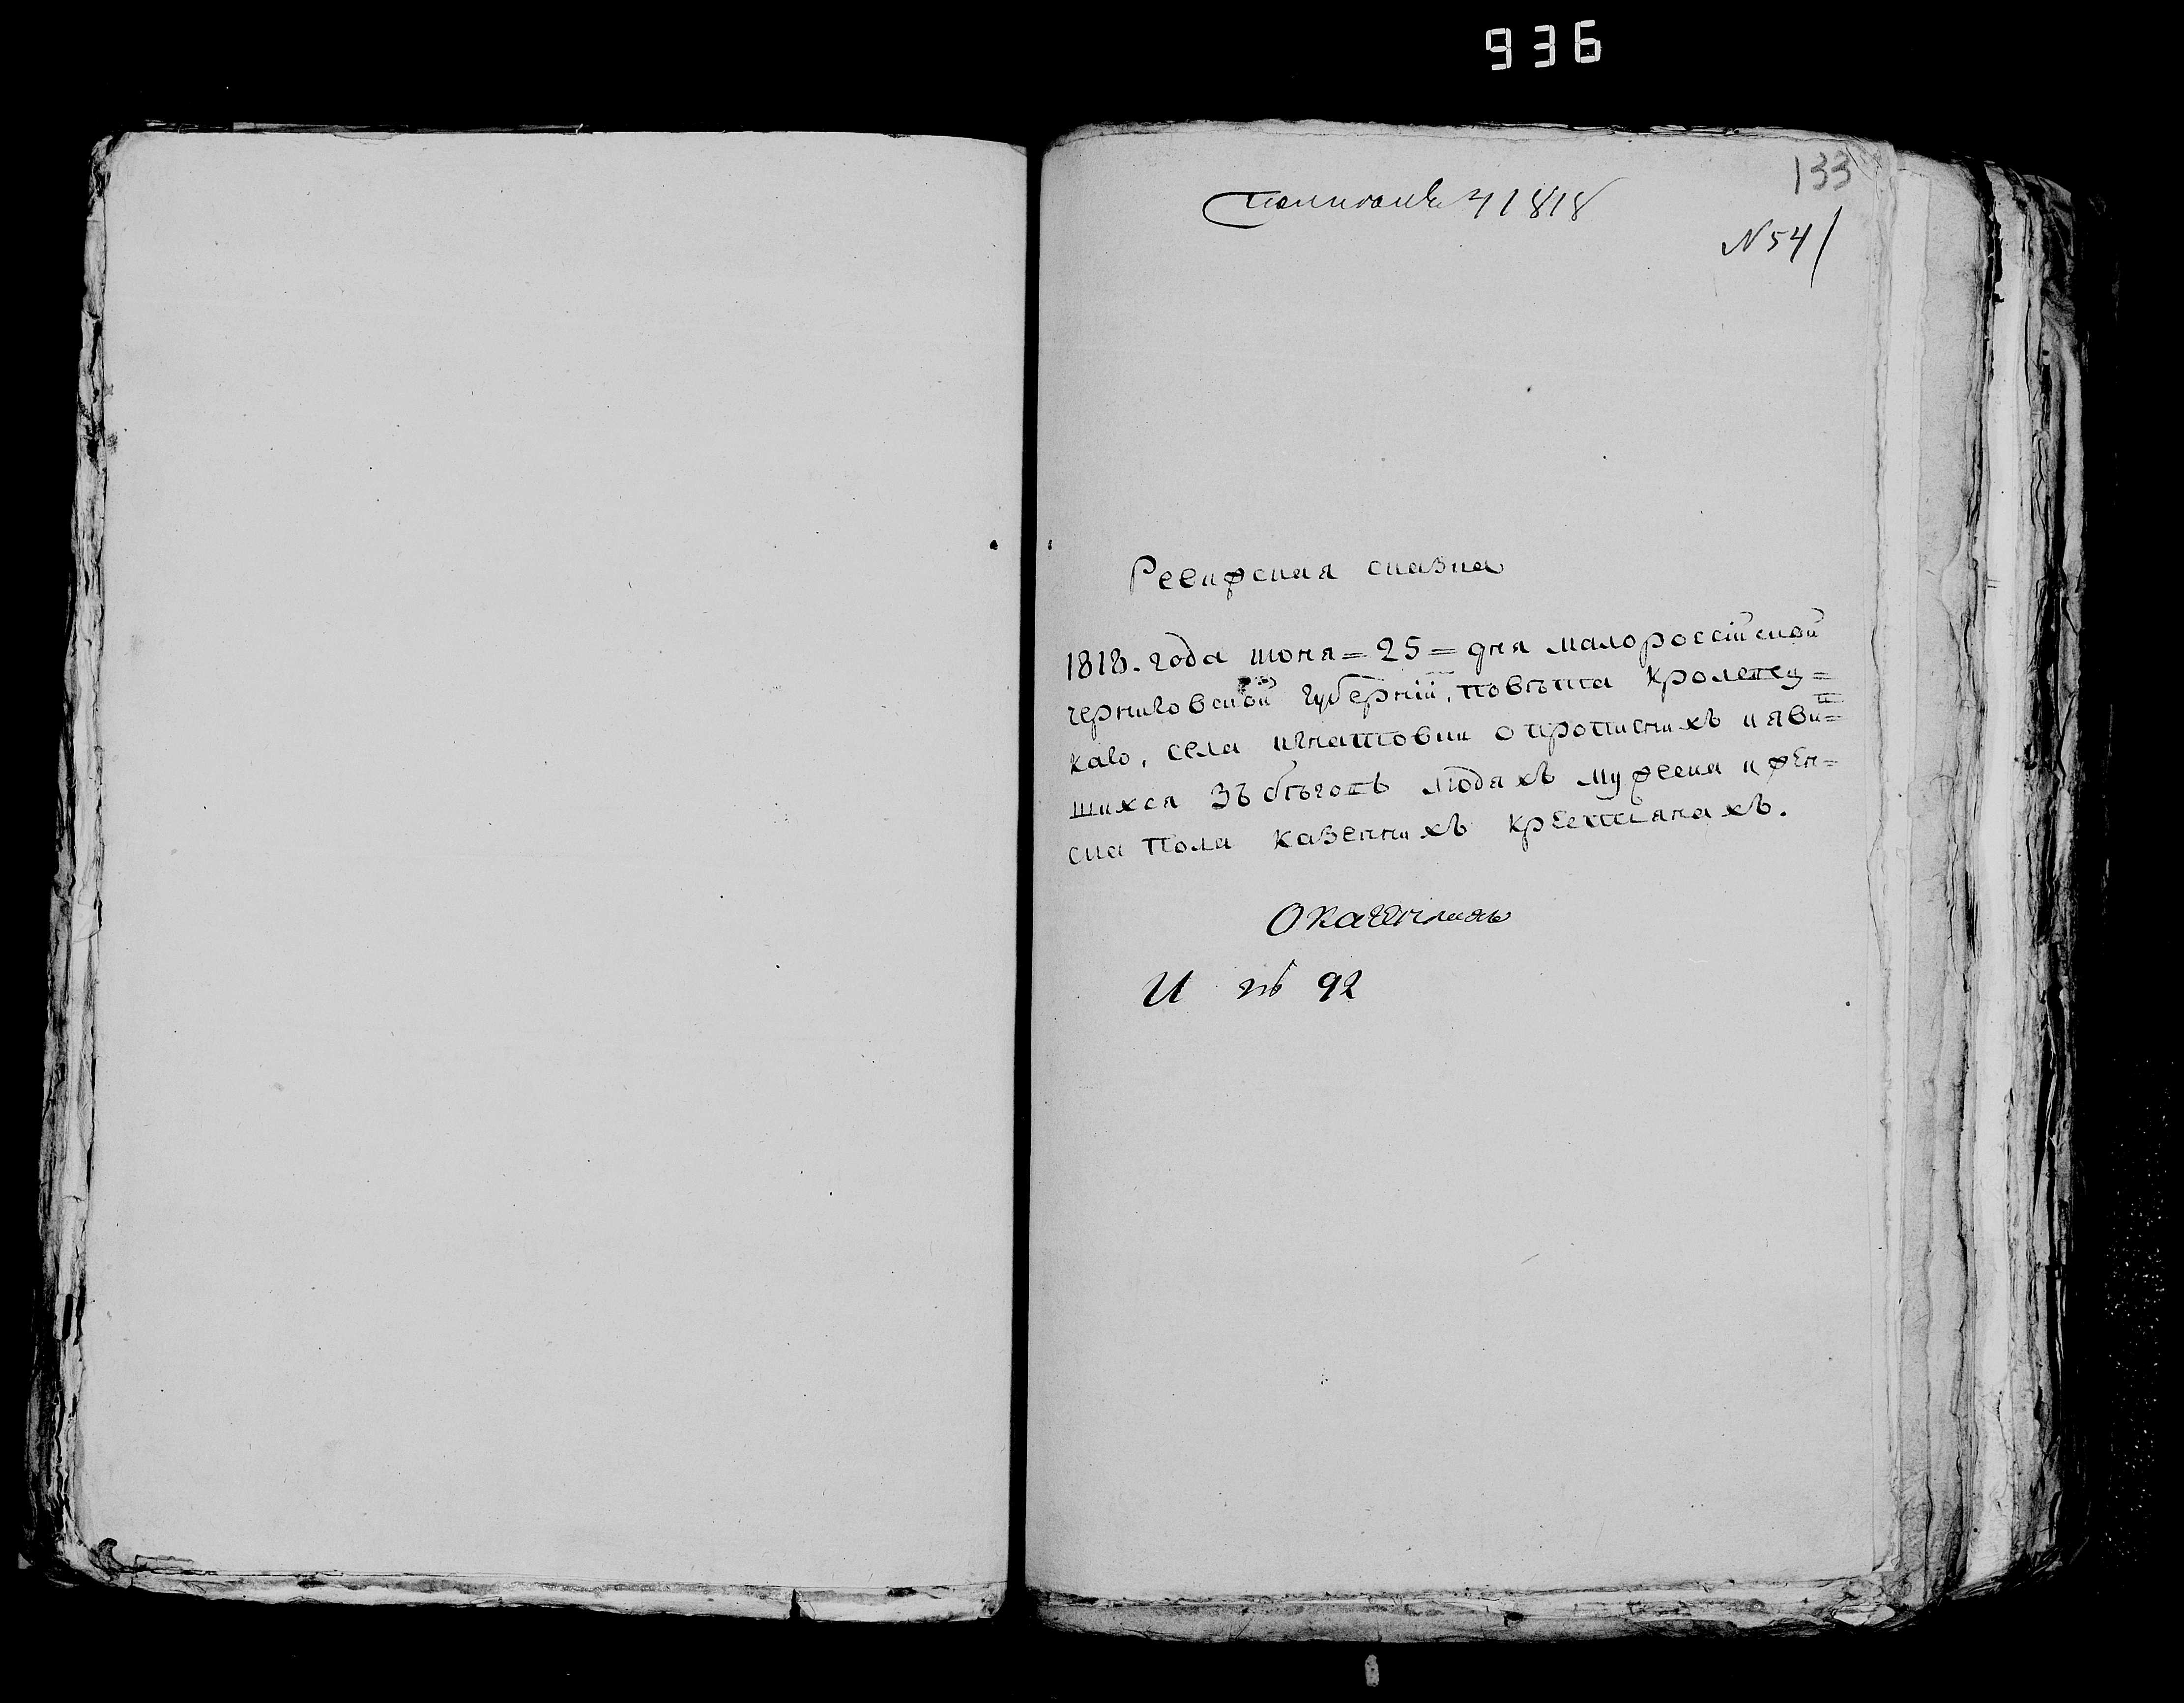 936
133
1818
N 54
Ревизская сказка
1818. года июня = 25 = дня малороссійской
черниговской губерніи, повѣта кролевец=
каго, села игнатовки о прописнихъ и яви=
шихся зъ бѣговъ людяхъ мужеска и жен=
ска пола казеннихъ крестьянахъ.
И № 92